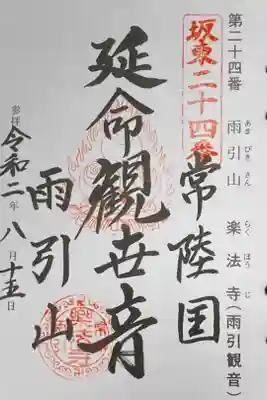 第二十四番 雨引山 楽法寺(雨引観音)
あまびきさん らくほうじ
坂東二十四番
常陸国
延命観世音
雨引山
参拝 令和二年八月十五日